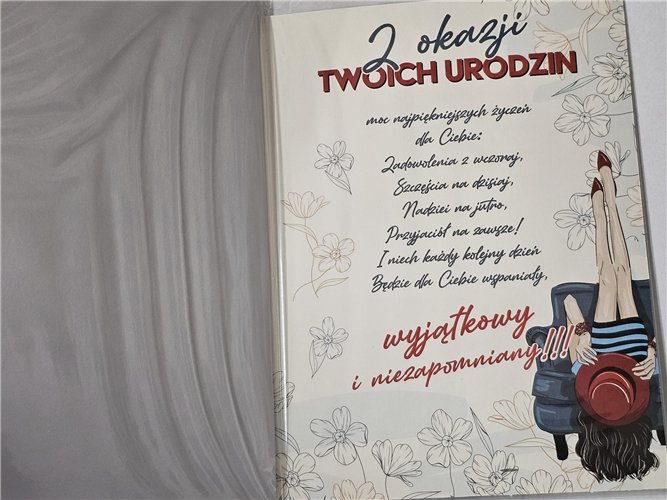 Z okazji
TWOICH URODZIN
moc najpiękniejszych życzeń
dla Ciebie:
Zadowolenia z wczoraj,
Szczęścia na dzisiaj,
Nadziei na jutro,
Przyjaciół na zawsze!
I niech każdy kolejny dzień
Będzie dla Ciebie wspaniały,
wyjątkowy
i niezapomniany!!!